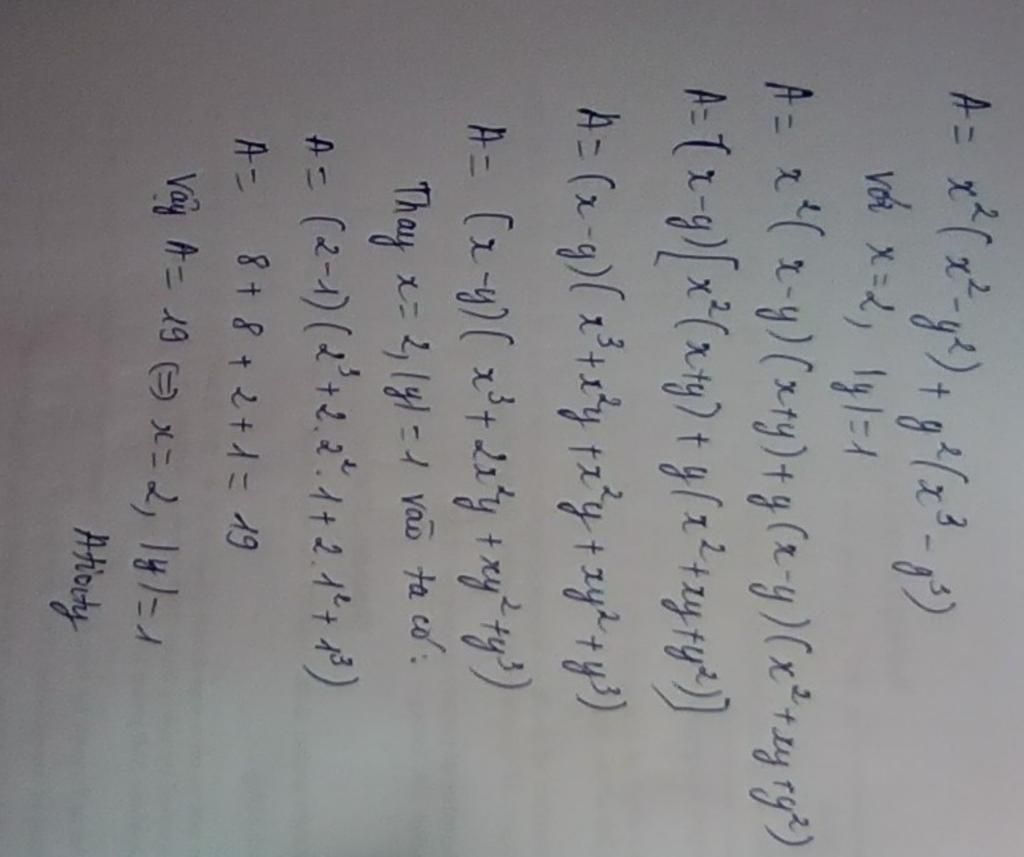 A = x²(x² - y²) + y²(x³ - y³)
với x = 2, |y| = 1
A = x²(x-y)(x+y) + y(x-y)(x²+xy+y²)
A = (x-y)[x²(x+y) + y(x²+xy+y²)]
A = (x-y)(x³+x²y+x²y+xy²+y³)
A = (x-y)(x³+2x²y+xy²+y³)
Thay x = 2, |y| = 1 vào ta có:
A = (2-1)(2³+2.2².1+2.1²+1³)
A = 8 + 8 + 2 + 1 = 19
Vậy A = 19 ⇔ x = 2, |y| = 1